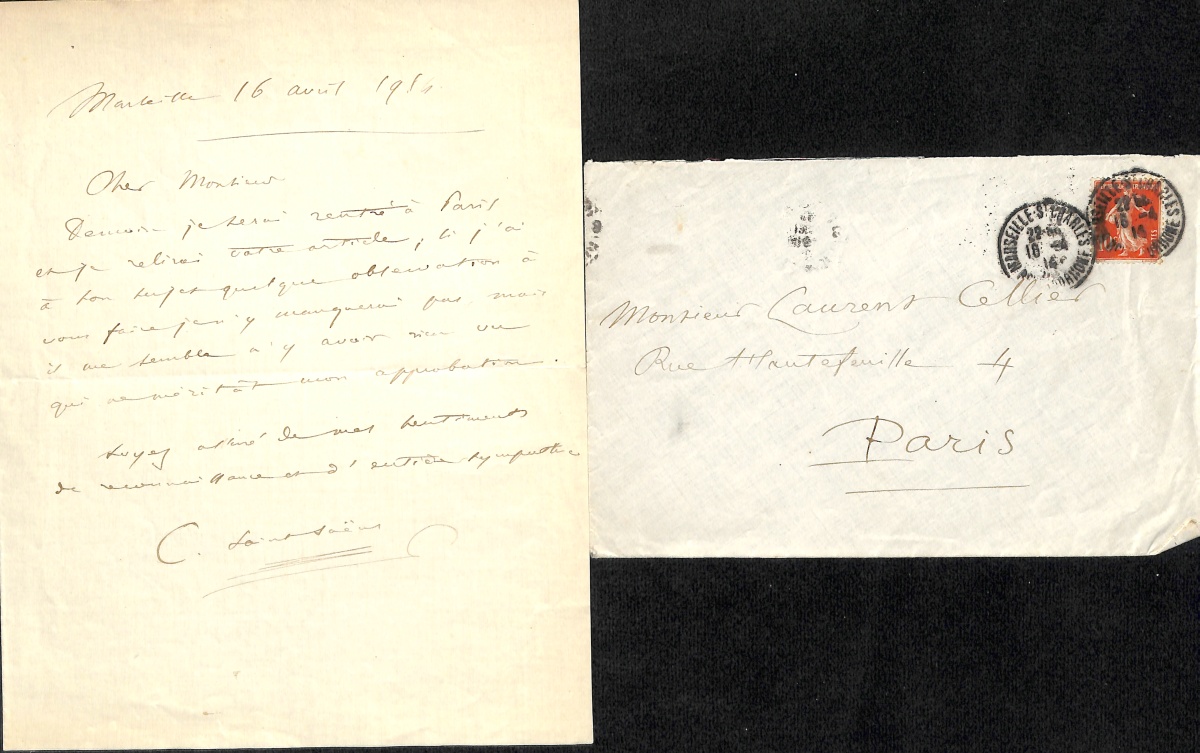 Marseille 16 avril 1914
Cher Monsieur
Demain je serai rentré à Paris
et je relirai votre article ; si j'ai
à son sujet quelque observation à
vous faire je n'y manquerai pas mais
il me semble n'y avoir rien vu
qui ne méritât mon approbation.
Soyez assuré de mes sentiments
de reconnaissance et d'entière sympathie
C. Saint-Saëns
MARSEILLE-ST CHARLES
22-30
16-4
14
Monsieur Laurent Cellier
Rue Hautefeuille 4
Paris